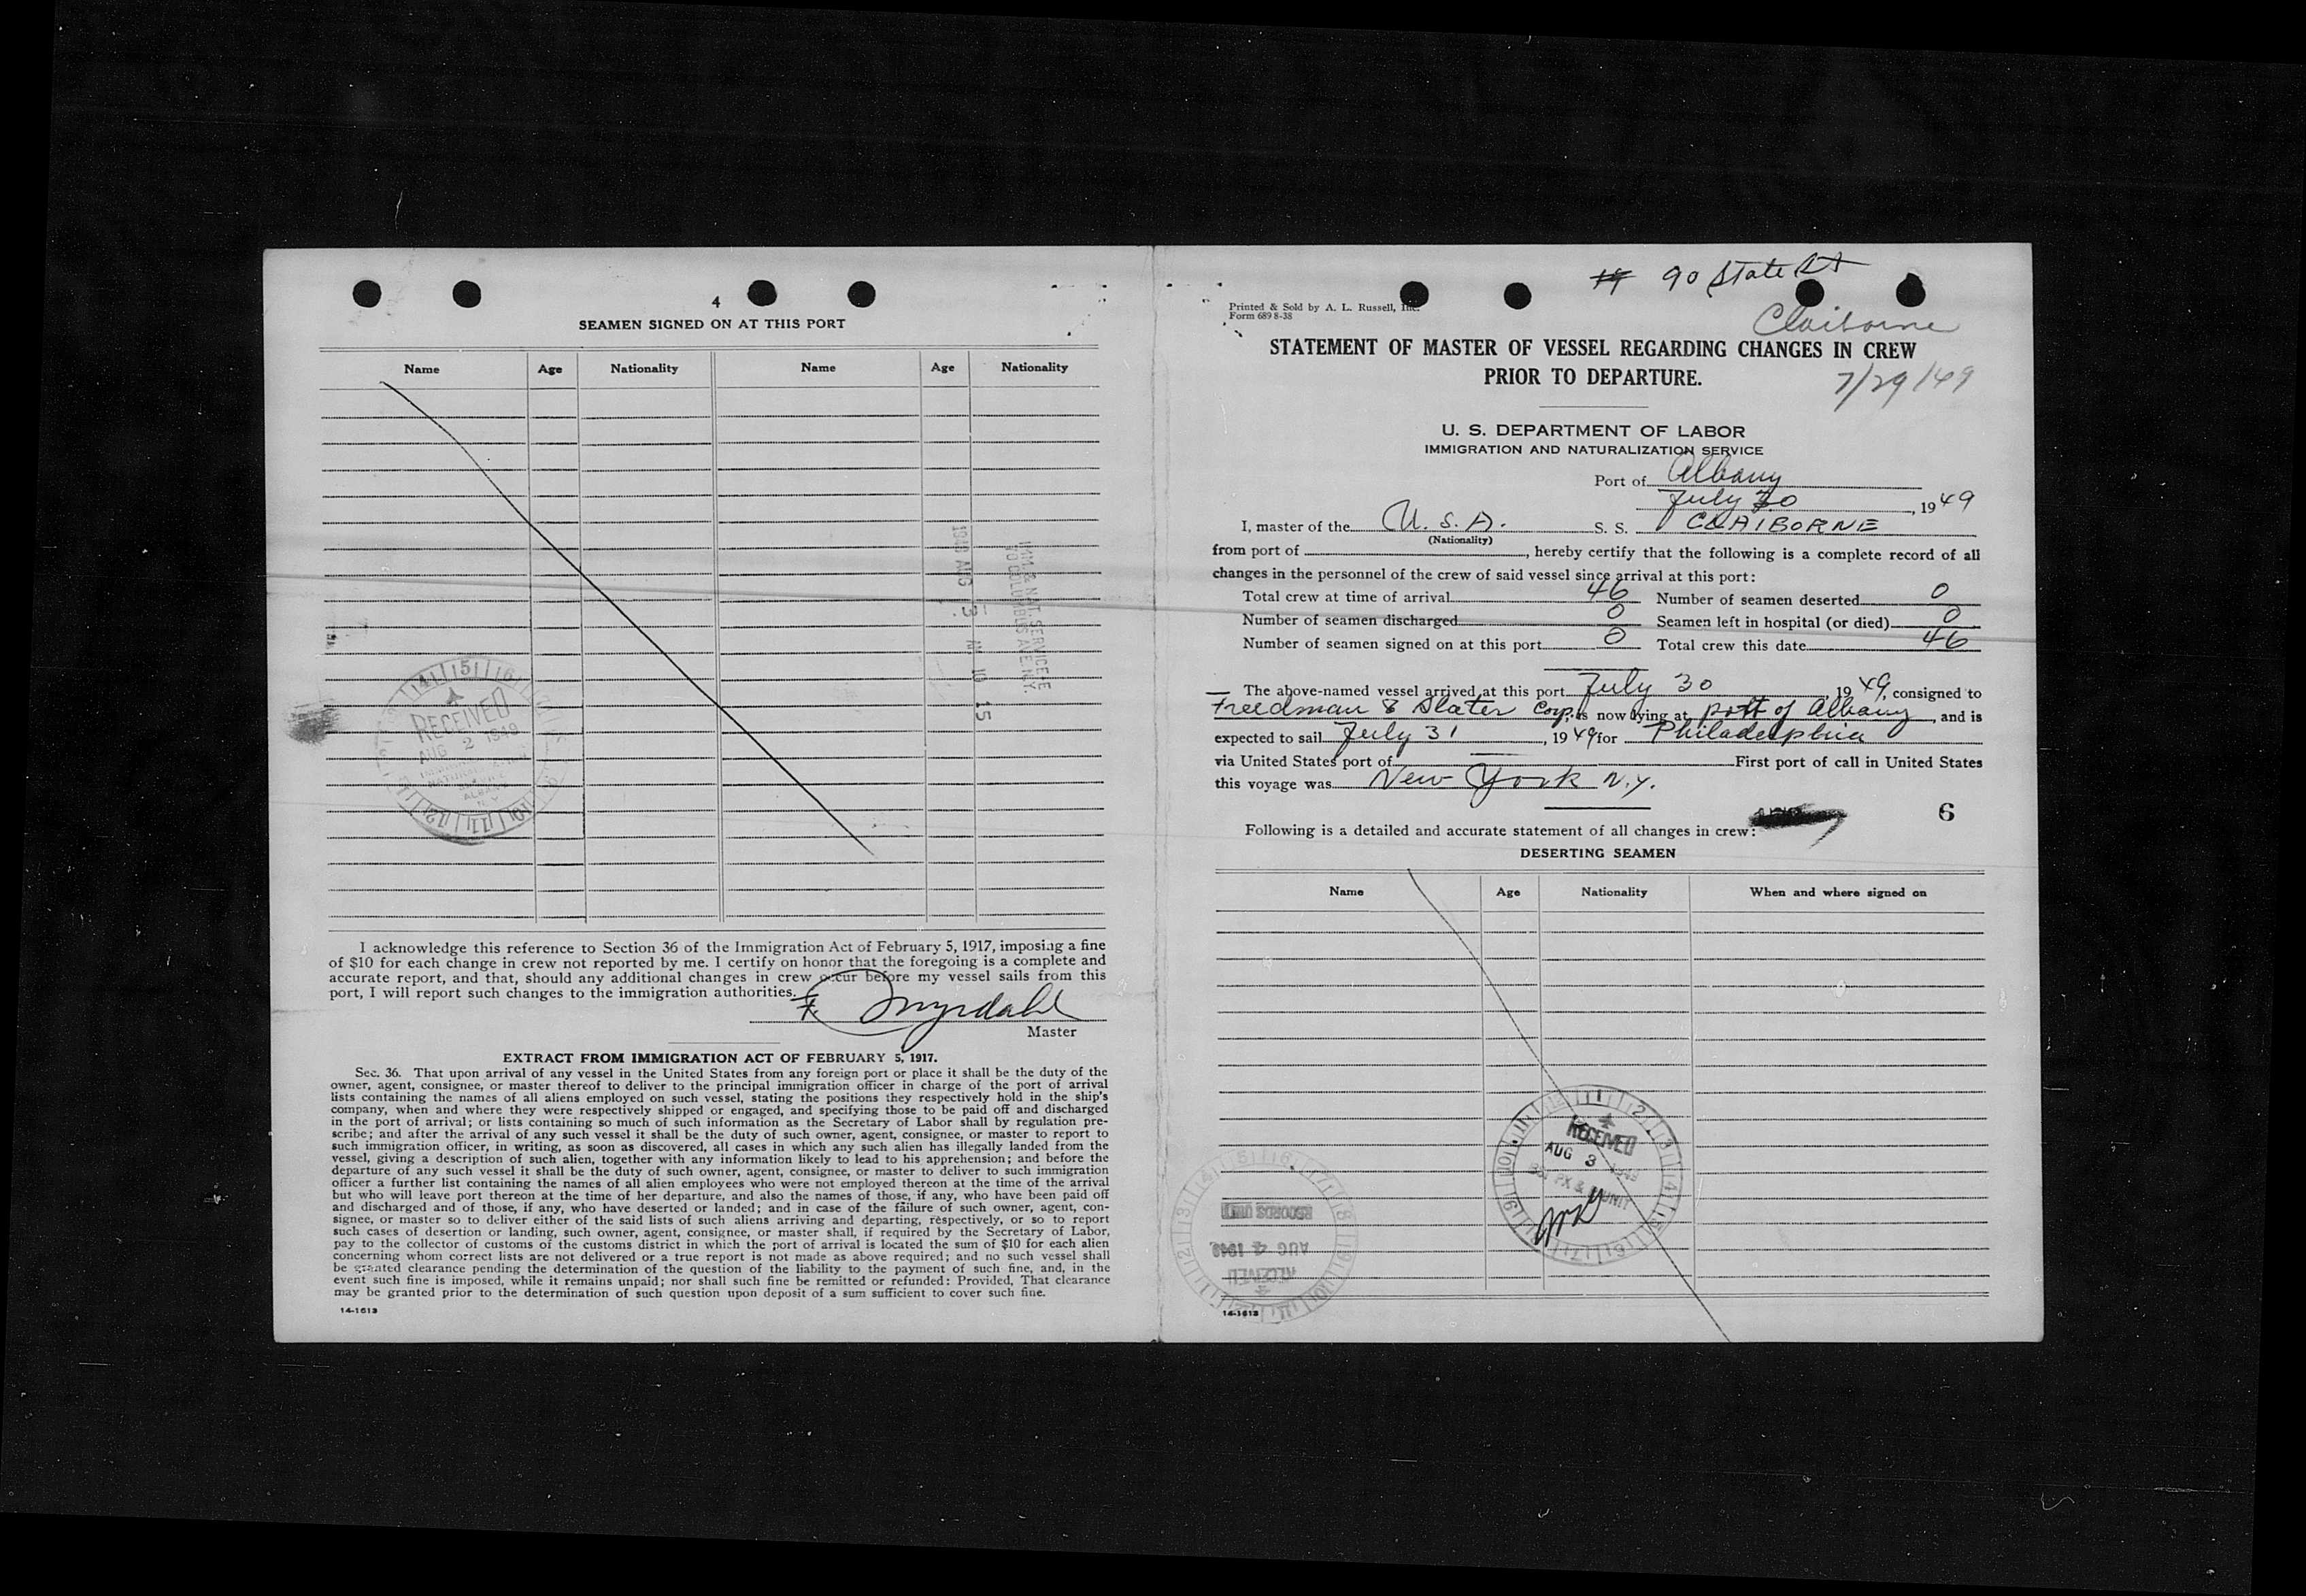 4
SEAMEN SIGNED ON AT THIS PORT
Name Age Nationality Name Age Nationality
1949 AUG 3 AM 10 15
IMM & NAT SERVICE
70 COLUMBUS AVE N.Y.
RECEIVED
AUG 2 1949
ALBANY
N.Y.
I acknowledge this reference to Section 36 of the Immigration Act of February 5, 1917, imposing a fine
of $10 for each change in crew not reported by me. I certify on honor that the foregoing is a complete and
accurate report, and that, should any additional changes in crew occur before my vessel sails from this
port, I will report such changes to the immigration authorities.
F. Myrdahl
Master
EXTRACT FROM IMMIGRATION ACT OF FEBRUARY 5, 1917.
Sec. 36. That upon arrival of any vessel in the United States from any foreign port or place it shall be the duty of the
owner, agent, consignee, or master thereof to deliver to the principal immigration officer in charge of the port of arrival
lists containing the names of all aliens employed on such vessel, stating the positions they respectively hold in the ship's
company, when and where they were respectively shipped or engaged, and specifying those to be paid off and discharged
in the port of arrival; or lists containing so much of such information as the Secretary of Labor shall by regulation pre-
scribe; and after the arrival of any such vessel it shall be the duty of such owner, agent, consignee, or master to report to
such immigration officer, in writing, as soon as discovered, all cases in which any such alien has illegally landed from the
vessel, giving a description of such alien, together with any information likely to lead to his apprehension; and before the
departure of any such vessel it shall be the duty of such owner, agent, consignee, or master to deliver to such immigration
officer a further list containing the names of all alien employees who were not employed thereon at the time of the arrival
but who will leave port thereon at the time of her departure, and also the names of those, if any, who have been paid off
and discharged and of those, if any, who have deserted or landed; and in case of the failure of such owner, agent, con-
signee, or master so to deliver either of the said lists of such aliens arriving and departing, respectively, or so to report
such cases of desertion or landing, such owner, agent, consignee, or master shall, if required by the Secretary of Labor,
pay to the collector of customs of the customs district in which the port of arrival is located the sum of $10 for each alien
concerning whom correct lists are not delivered or a true report is not made as above required; and no such vessel shall
be granted clearance pending the determination of the question of the liability to the payment of such fine, and, in the
event such fine is imposed, while it remains unpaid; nor shall such fine be remitted or refunded: Provided, That clearance
may be granted prior to the determination of such question upon deposit of a sum sufficient to cover such fine.
14-1613
90 State St
Printed & Sold by A. L. Russell, Inc.
Form 689 8-38
Claiborne
STATEMENT OF MASTER OF VESSEL REGARDING CHANGES IN CREW
PRIOR TO DEPARTURE.
7/29/49
U. S. DEPARTMENT OF LABOR
IMMIGRATION AND NATURALIZATION SERVICE
Port of Albany
July 30, 1949
I, master of the U.S.A. S. S. CLAIBORNE
(Nationality)
from port of , hereby certify that the following is a complete record of all
changes in the personnel of the crew of said vessel since arrival at this port:
Total crew at time of arrival 46 Number of seamen deserted 0
Number of seamen discharged 0 Seamen left in hospital (or died) 0
Number of seamen signed on at this port 0 Total crew this date 46
The above-named vessel arrived at this port July 30, 1949, consigned to
Freedman & Slater Corp, is now lying at port of Albany, and is
expected to sail July 31, 1949 for Philadelphia
via United States port of First port of call in United States
this voyage was New York N.Y.
6
Following is a detailed and accurate statement of all changes in crew:
DESERTING SEAMEN
Name Age Nationality When and where signed on
RECEIVED
AUG 3 1949
UNIT
RECORDS UNIT
AUG 4 1949
RECEIVED
14-1613